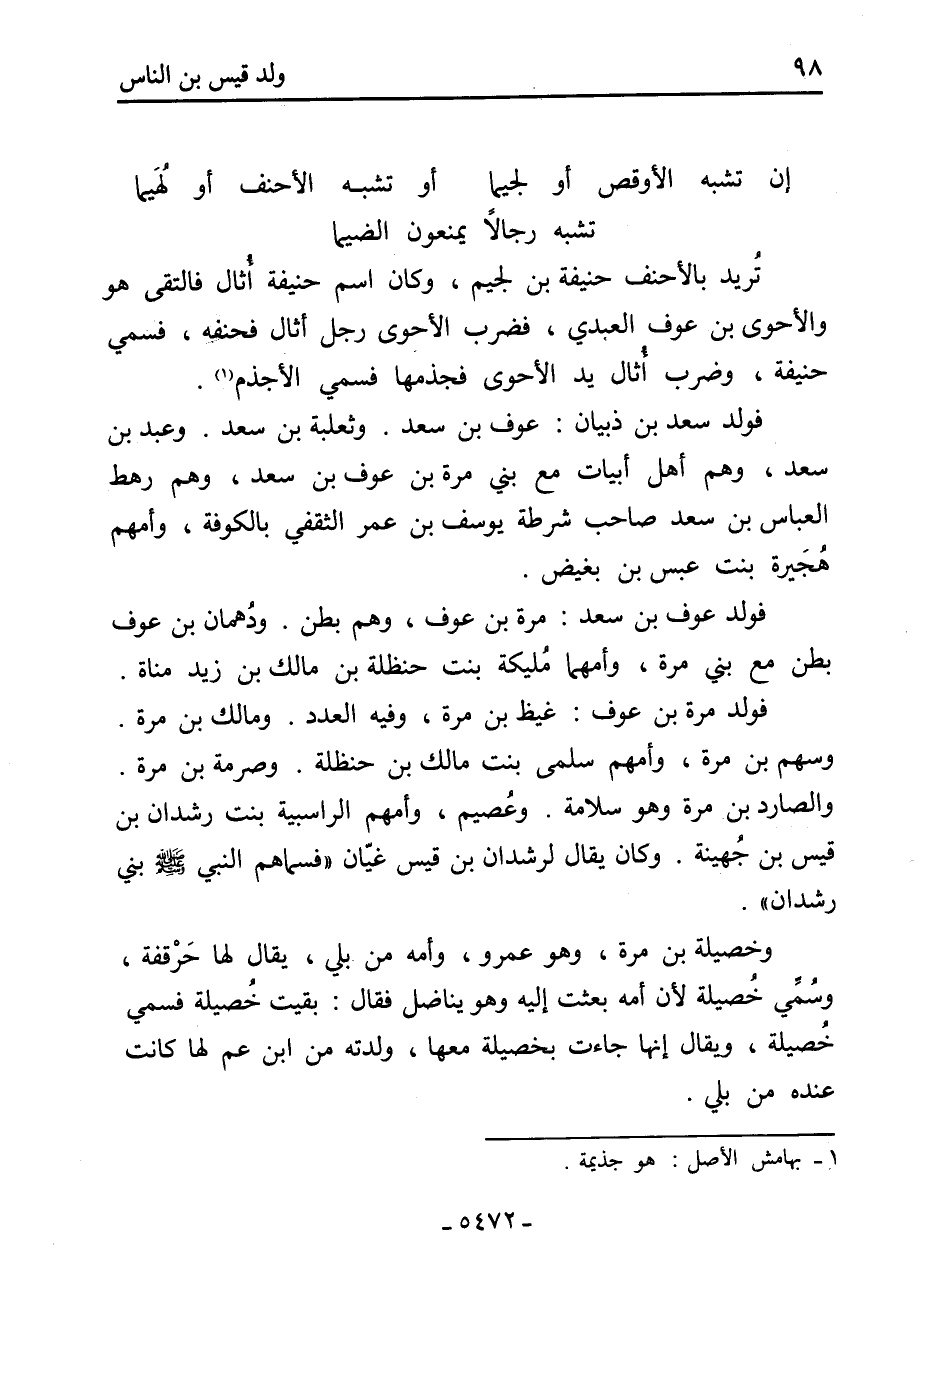 ٩٨
ولد قيس بن الناس
إن تشبه الأوقص أو لجيما أو تشبه الأحنف أو لُهَيما
تشبه رجالاً يمنعون الضيما
تُريد بالأحنف حنيفة بن لجيم ، وكان اسم حنيفة أُثال فالتقى هو
والأحوى بن عوف العبدي ، فضرب الأحوى رجل أثال فحنفه ، فسمي
حنيفة ، وضرب أُثال يد الأحوى فجذمها فسمي الأجذم(١) .
فولد سعد بن ذبيان : عوف بن سعد . وثعلبة بن سعد . وعبد بن
سعد ، وهم أهل أبيات مع بني مرة بن عوف بن سعد ، وهم رهط
العباس بن سعد صاحب شرطة يوسف بن عمر الثقفي بالكوفة ، وأمهم
هُجَيرة بنت عبس بن بغيض .
فولد عوف بن سعد : مرة بن عوف ، وهم بطن . ودُهمان بن عوف
بطن مع بني مرة ، وأمهما مُليكة بنت حنظلة بن مالك بن زيد مناة .
فولد مرة بن عوف : غيظ بن مرة ، وفيه العدد . ومالك بن مرة .
وسهم بن مرة ، وأمهم سلمى بنت مالك بن حنظلة . وصرمة بن مرة .
والصارد بن مرة وهو سلامة . وعُصيم ، وأمهم الراسبية بنت رشدان بن
قيس بن جُهينة . وكان يقال لرشدان بن قيس غيّان «فسماهم النبي ﷺ بني
رشدان» .
وخصيلة بن مرة ، وهو عمرو ، وأمه من بلي ، يقال لها حَرْقفة ،
وسُمِّي خُصيلة لأن أمه بعثت إليه وهو يناضل فقال : بقيت خُصيلة فسمي
خُصيلة ، ويقال إنها جاءت بخصيلة معها ، ولدته من ابن عم لها كانت
عنده من بلي .
١ - بهامش الأصل : هو جذيمة .
- ٥٤٧٢ -